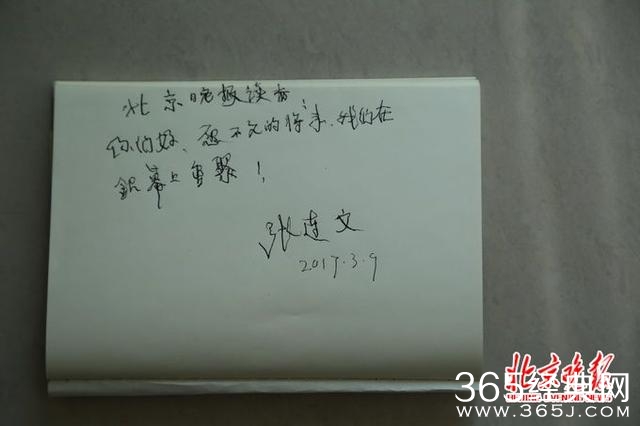 北京晚报读者
你们好、愿不久的将来、我们在
銀幕上重聚！
张连文
2017.3.9
北京晚报
BEIJING EVENING NEWS
365经典网
WWW.365J.COM